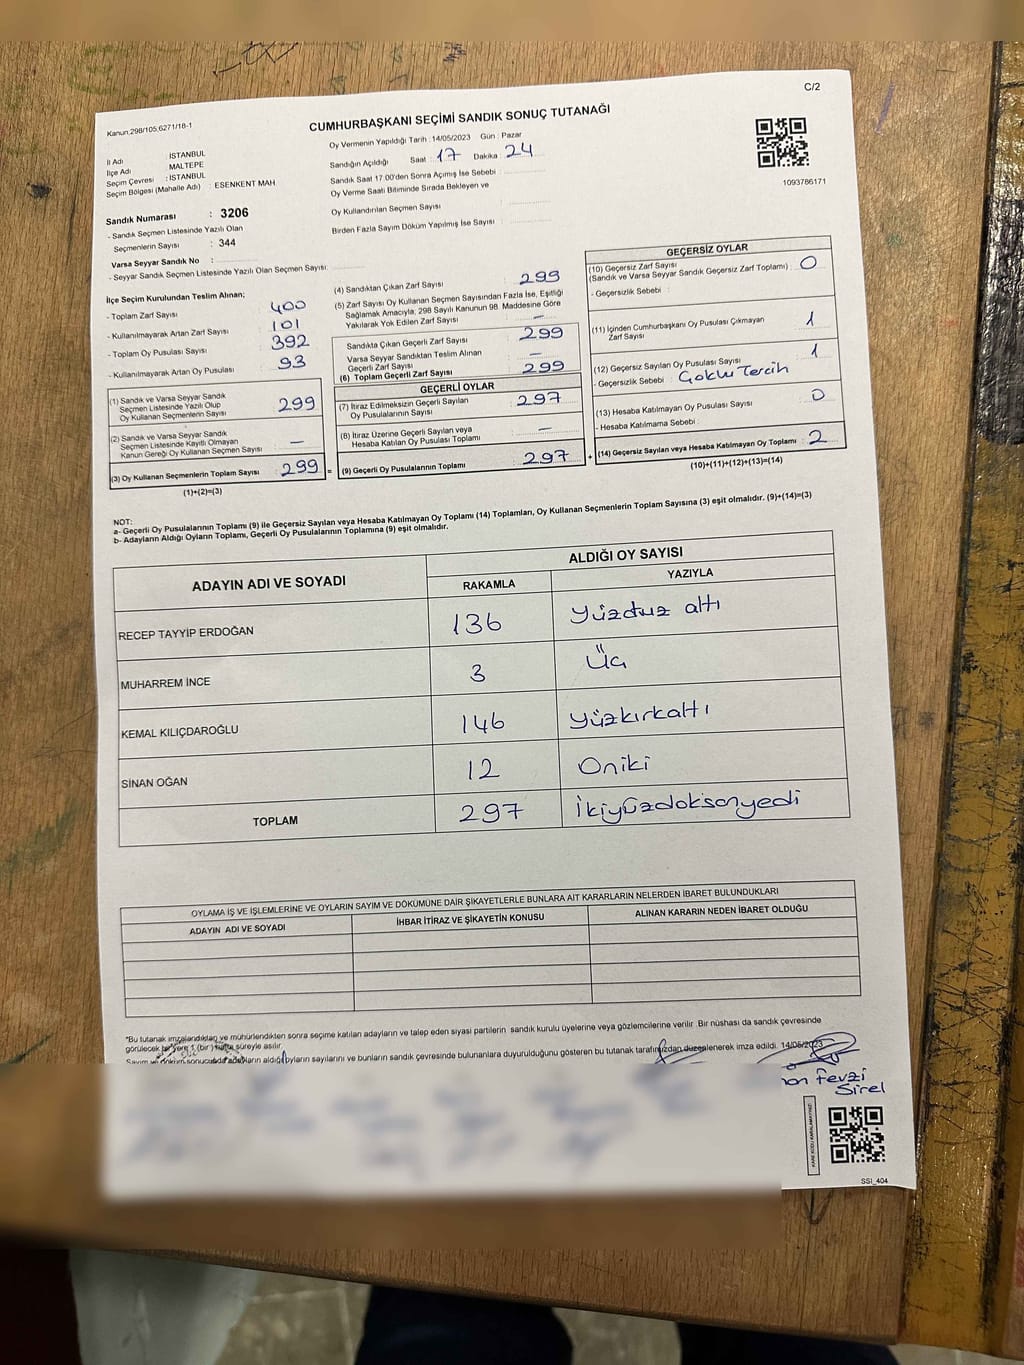 C/2
Kanun,298/105,6271/18-1
CUMHURBAŞKANI SEÇİMİ SANDIK SONUÇ TUTANAĞI
1093786171
İl Adı : İSTANBUL
İlçe Adı : MALTEPE
Seçim Çevresi : İSTANBUL
Seçim Bölgesi (Mahalle Adı) : ESENKENT MAH
Sandık Numarası : 3206
- Sandık Seçmen Listesinde Yazılı Olan
Seçmenlerin Sayısı : 344
Varsa Seyyar Sandık No :
- Seyyar Sandık Seçmen Listesinde Yazılı Olan Seçmen Sayısı:
Oy Vermenin Yapıldığı Tarih : 14/05/2023 Gün : Pazar
Sandığın Açıldığı Saat : 17 Dakika : 24
Sandık Saat 17.00'den Sonra Açımış İse Sebebi :
Oy Verme Saati Bitiminde Sırada Bekleyen ve
Oy Kullandırılan Seçmen Sayısı :
Birden Fazla Sayım Döküm Yapılmış İse Sayısı :
İlçe Seçim Kurulundan Teslim Alınan;
- Toplam Zarf Sayısı : 400
- Kullanılmayarak Artan Zarf Sayısı : 101
- Toplam Oy Pusulası Sayısı : 392
- Kullanılmayarak Artan Oy Pusulası : 93
(1) Sandık ve Varsa Seyyar Sandık
Seçmen Listesinde Yazılı Olup
Oy Kullanan Seçmenlerin Sayısı : 299
(2) Sandık ve Varsa Seyyar Sandık
Seçmen Listesinde Kayıtlı Olmayan
Kanun Gereği Oy Kullanan Seçmen Sayısı : –
(3) Oy Kullanan Seçmenlerin Toplam Sayısı : 299
(1)+(2)=(3)
(4) Sandıktan Çıkan Zarf Sayısı : 299
(5) Zarf Sayısı Oy Kullanan Seçmen Sayısından Fazla İse, Eşitliği
Sağlamak Amacıyla; 298 Sayılı Kanunun 98. Maddesine Göre
Yakılarak Yok Edilen Zarf Sayısı : –
Sandıkta Çıkan Geçerli Zarf Sayısı : 299
Varsa Seyyar Sandıktan Teslim Alınan
Geçerli Zarf Sayısı : –
(6) Toplam Geçerli Zarf Sayısı : 299
GEÇERLİ OYLAR
(7) İtiraz Edilmeksizin Geçerli Sayılan
Oy Pusulalarının Sayısı : 297
(8) İtiraz Üzerine Geçerli Sayılan veya
Hesaba Katılan Oy Pusulası Toplamı : –
= (9) Geçerli Oy Pusulalarının Toplamı : 297
GEÇERSİZ OYLAR
(10) Geçersiz Zarf Sayısı
(Sandık ve Varsa Seyyar Sandık Geçersiz Zarf Toplamı) : 0
- Geçersizlik Sebebi :
(11) İçinden Cumhurbaşkanı Oy Pusulası Çıkmayan
Zarf Sayısı : 1
(12) Geçersiz Sayılan Oy Pusulası Sayısı : 1
- Geçersizlik Sebebi : Çoklu Tercih
(13) Hesaba Katılmayan Oy Pusulası Sayısı : 0
- Hesaba Katılmama Sebebi :
+ (14) Geçersiz Sayılan veya Hesaba Katılmayan Oy Toplamı : 2
(10)+(11)+(12)+(13)=(14)
NOT:
a- Geçerli Oy Pusulalarının Toplamı (9) ile Geçersiz Sayılan veya Hesaba Katılmayan Oy Toplamı (14) Toplamları, Oy Kullanan Seçmenlerin Toplam Sayısına (3) eşit olmalıdır. (9)+(14)=(3)
b- Adayların Aldığı Oyların Toplamı, Geçerli Oy Pusulalarının Toplamına (9) eşit olmalıdır.
ADAYIN ADI VE SOYADI ALDIĞI OY SAYISI
RAKAMLA YAZIYLA
RECEP TAYYİP ERDOĞAN 136 altı
MUHARREM İNCE 3 Üç
KEMAL KILIÇDAROĞLU 146 yüzkırkaltı
SİNAN OĞAN 12 Oniki
TOPLAM 297 İkiyüzdoksanyedi
OYLAMA İŞ VE İŞLEMLERİNE VE OYLARIN SAYIM VE DÖKÜMÜNE DAİR ŞİKAYETLERLE BUNLARA AİT KARARLARIN NELERDEN İBARET BULUNDUKLARI
ADAYIN ADI VE SOYADI İHBAR İTİRAZ VE ŞİKAYETİN KONUSU ALINAN KARARIN NEDEN İBARET OLDUĞU
*Bu tutanak imzalandıktan ve mühürlendikten sonra seçime katılan adayların ve talep eden siyasi partilerin sandık kurulu üyelerine veya gözlemcilerine verilir. Bir nüshası da sandık çevresinde
görülecek bir yere 1 (bir) hafta süreyle asılır.
Sayım ve döküm sonucunda adayların aldığı oyların sayılarını ve bunların sandık çevresinde bulunanlara duyurulduğunu gösteren bu tutanak tarafımızdan düzenlenerek imza edildi. 14/05/2023
Fevzi
Sirel
SSI_404